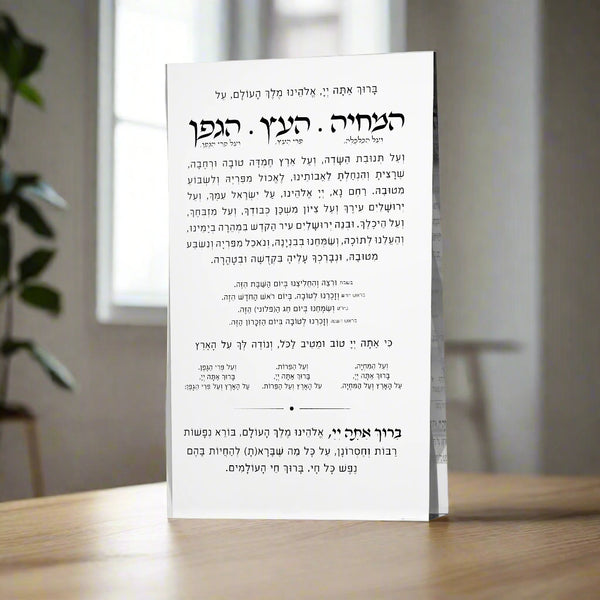 בָּרוּךְ אַתָּה יְיָ, אֱלֹהֵינוּ מֶלֶךְ הָעוֹלָם, עַל
המחיה . העץ . הגפן
ועל הכלכלה, פרי העץ, ועל פרי הגפן,
וְעַל תְּנוּבַת הַשָּׂדֶה, וְעַל אֶרֶץ חֶמְדָּה טוֹבָה וּרְחָבָה,
שֶׁרָצִיתָ וְהִנְחַלְתָּ לַאֲבוֹתֵינוּ, לֶאֱכוֹל מִפִּרְיָהּ וְלִשְׂבּוֹעַ
מִטּוּבָהּ. רַחֵם נָא, יְיָ אֱלֹהֵינוּ, עַל יִשְׂרָאֵל עַמֶּךָ, וְעַל
יְרוּשָׁלַיִם עִירֶךָ וְעַל צִיּוֹן מִשְׁכַּן כְּבוֹדֶךָ, וְעַל מִזְבְּחֶךָ,
וְעַל הֵיכָלֶךָ. וּבְנֵה יְרוּשָׁלַיִם עִיר הַקֹּדֶשׁ בִּמְהֵרָה בְיָמֵינוּ,
וְהַעֲלֵנוּ לְתוֹכָהּ, וְשַׂמְּחֵנוּ בְּבִנְיָנָהּ, וְנֹאכַל מִפִּרְיָהּ וְנִשְׂבַּע
מִטּוּבָהּ, וּנְבָרֶכְךָ עָלֶיהָ בִּקְדֻשָּׁה וּבְטָהֳרָה.
בשבת: וּרְצֵה וְהַחֲלִיצֵנוּ בְּיוֹם הַשַּׁבָּת הַזֶּה.
בראש חודש: וְזָכְרֵנוּ לְטוֹבָה. בְּיוֹם רֹאשׁ הַחֹדֶשׁ הַזֶּה.
ביו"ט: וְשַׂמְּחֵנוּ בְּיוֹם חַג הַ(פְּלוֹנִי) הַזֶּה.
בראש השנה: וְזָכְרֵנוּ לְטוֹבָה בְּיוֹם הַזִּכָּרוֹן הַזֶּה.
כִּי אַתָּה יְיָ טוֹב וּמֵטִיב לַכֹּל, וְנוֹדֶה לְּךָ עַל הָאָרֶץ
וְעַל הַמִּחְיָה. וְעַל הַפֵּרוֹת. וְעַל פְּרִי הַגֶּפֶן.
בָּרוּךְ אַתָּה יְיָ, בָּרוּךְ אַתָּה יְיָ, בָּרוּךְ אַתָּה יְיָ,
עַל הָאָרֶץ וְעַל הַמִּחְיָה. עַל הָאָרֶץ וְעַל הַפֵּרוֹת. עַל הָאָרֶץ וְעַל פְּרִי הַגֶּפֶן:
בָּרוּךְ אַתָּה יְיָ, אֱלֹהֵינוּ מֶלֶךְ הָעוֹלָם, בּוֹרֵא נְפָשׁוֹת
רַבּוֹת וְחֶסְרוֹנָן, עַל כָּל מַה שֶּׁבָּרָא(תָ) לְהַחֲיוֹת בָּהֶם
נֶפֶשׁ כָּל חָי. בָּרוּךְ חֵי הָעוֹלָמִים.